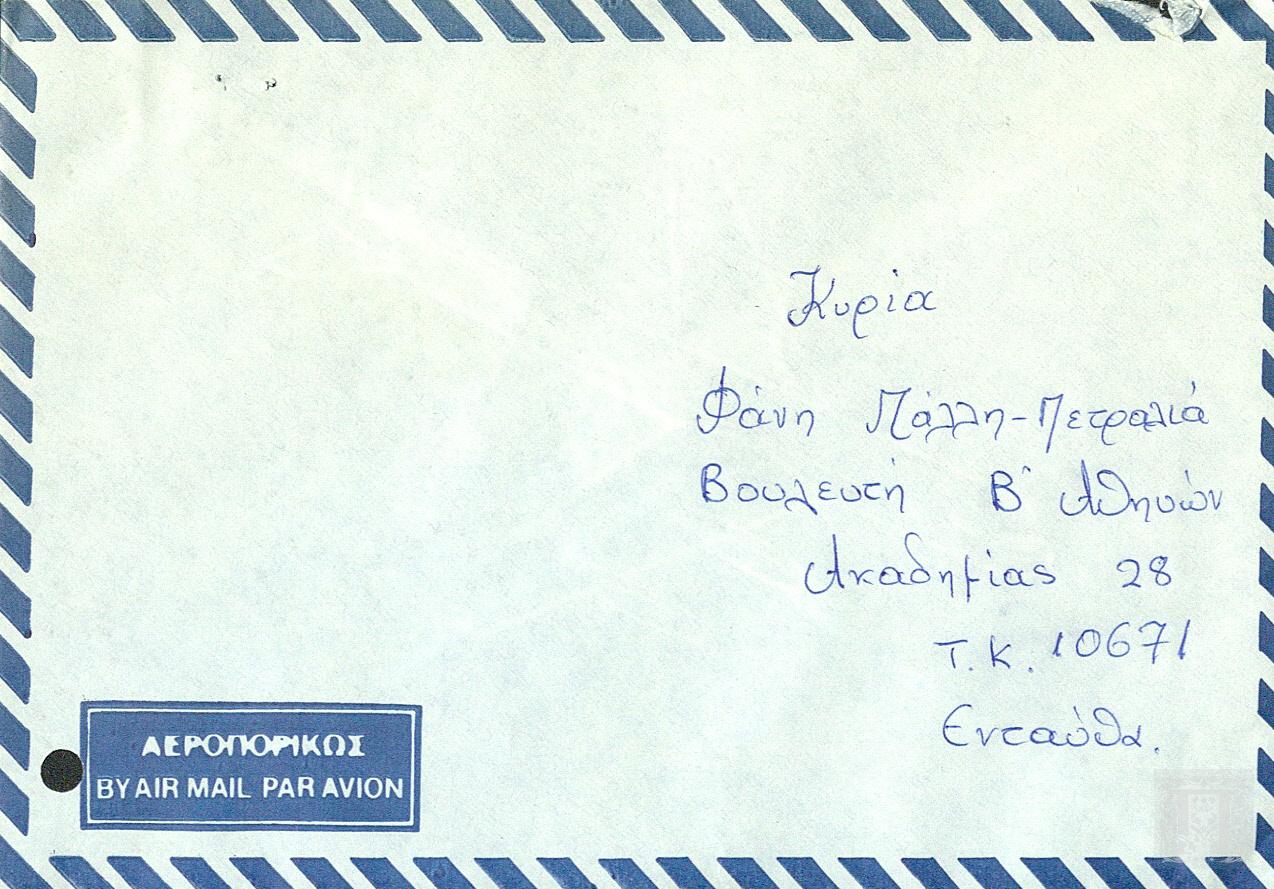 Κυρία
Φάνη Πάλλη-Πετραλιά
Βουλευτή Β' Αθηνών
Ακαδημίας 28
Τ.Κ. 10671
Ενταύθα.
ΑΕΡΟΠΟΡΙΚΩΣ
BY AIR MAIL PAR AVION